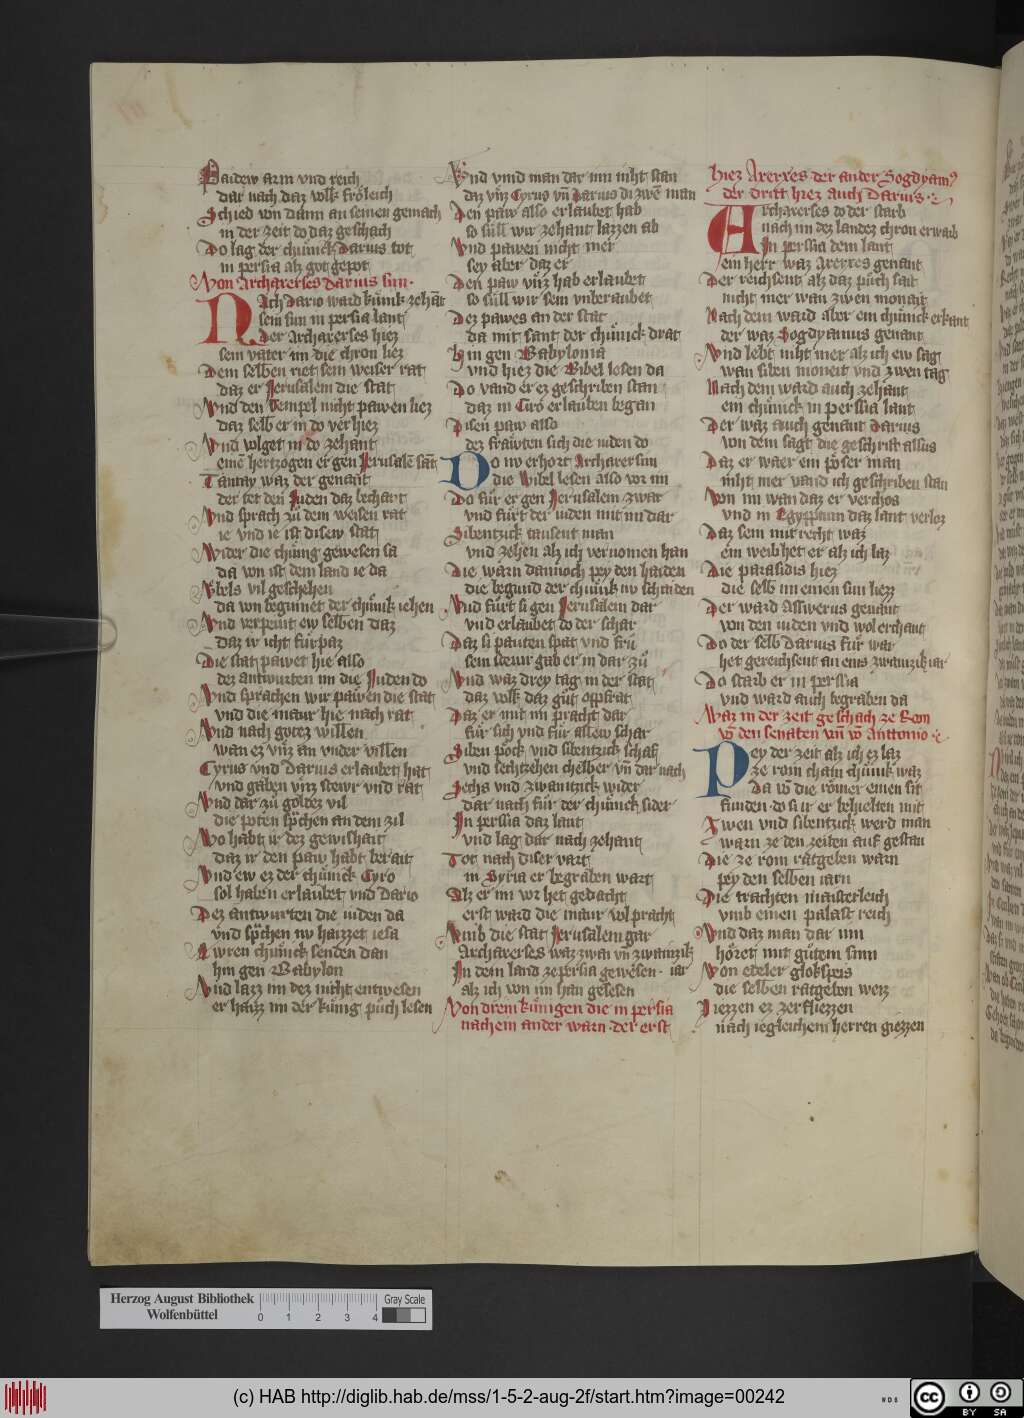 Baidew arm vnd reich
dar nach daz volk frölich
Schied von dann an seinen gemach
in der zeit do daz geschach
Do lag der chünick Darius tot
in persia alz got gepot
Von Archarerses Darius sun
Nach Dario ward künik zehāt
sein sun in persia lant
Der Archarerses hiez
sein vater im die chron liez
Dem selben riet sein weiser rat
daz er Jerusalem die stat
Vnd den Tempel nicht pawen liez
daz selb er in do verhiez
Vnd volget in do zehant
einē hertzogen er gen Jerusalē sāt
Tantay waz der genant
der tet den Juden daz bechart
Vnd sprach zü dem weisen rat
ie vnd ie ist disew stat
Wider die chüng gewesen sa
da von ist dem land ie da
Vbels vil geschehen
da von beginnet der chünik iehen
Vnd verpeint ew selben daz
daz ir icht fürpaz
Die stat pawet hie also
dez antwurten im die Juden do
Vnd sprachen wir pawen die stat
vnd die maur hie nach rat
Vnd nach gotez willen
wan ez vnz an vnder villen
Cyrus vnd Darius erlaubet hat
vnd gaben vnz stewr vnd rat
Vnd dar zü goldez vil
die poten sp̄chen an dem zil
Wo habt ir dez gewishait
daz ir den paw habt berait
Vnd ew ez der chünick Cyro
sol haben erlaubet vnd Dario
Dez antwurten die iuden da
vnd sp̄chen nv haizzet iesa
Ewren chünick senden dan
hin gen Babylon
Vnd lazz im dez nicht entwesen
er haizz im der künig püch lesen
Vnd vind man dar inn niht stan
daz vnz Cyrus vn̄ Darius di zwē man
Den paw also erlaubet hab
so süll wir zehant lazzen ab
Vnd pawen nicht mer
sey aber daz er
Den paw vnz hab erlaubt
so süll wir sein vnberaubet
Dez pawes an der stat
da mit sant der chünick drat
Hin gen Babylonia
vnd hiez die Bibel lesen da
Do vand er ez geschriben stan
daz in Ciro erlauben began
Disen paw also
dez frawten sich die iuden do
Do nv erhort Archarersim
die Bibel lesen also vor im
Do für er gen Jerusalem zwar
vnd fürt der iuden mit im dar
Sibentzick tausent man
vnd zehen alz ich vernomen han
Die warn dannoch pey den haiden
die begund der chünik nv schaiden
Vnd fürt si gen Jerusalem dar
vnd erlaubet do der schar
Daz si pauten spat vnd frü
sein stewr gab er in dar zü
Vnd waz drey tag in der stat
daz volk daz güt opffrat
Daz er mit im pracht dar
für sich vnd für allew schar
Siben pöck vnd sibentzick schaf
vnd sechtzehen chelber vn̄ dar nach
Sechs vnd zwaintzick wider
dar nach für der chünick sider
In persia daz lant
vnd lag dar nach zehant
Tot nach diser vart
in Syria er begraben wart
Alz er im vor het gedacht
erst ward die maur volpracht
Vmb die stat Jerusalem gar
Archarerses waz zwai vn̄ zwaintzik
In dem land ze persia gewesen · iar
alz ich von im han gelesen
Von drein künigen die in persia
nach ein ander warn · der erst
hiez Arerxes der ander Sogdyam9
der dritt hiez auch Darius
Archarerses do der starb
nach im dez landez chron erwarb
In persia dem lant
ein herr waz Arerxes genant
Der reichsent alz daz püch sait
nicht mer wan zwen monait
Nach dem ward aber ein chünick erkant
der waz Sogdyanus genant
Vnd lebt niht mer alz ich ew sag
wan siben moneit vnd zwen tag
Nach dem ward auch zehant
ein chünick in perssia lant
Der waz auch genant Darius
von dem sagt die geschrift alsus
Daz er waer ein pöser man
niht mer vand ich geschriben stan
Von im wan daz er verchos
vnd in Egypptum daz lant verloz
Daz sein mit recht waz
ein weib het er alz ich laz
Die parasidis hiez
die selb im einen sun liezz
Der ward Asswerus genant
von den iuden vnd wol erchant
Do der selb Darius für war
het gereichsent an eins zwaintzik iar
Do starb er in perssia
vnd ward auch begraben da
Waz in der zeit geschach ze Rom
vō den senaten vn̄ vō Anttonio
Pey der zeit alz ich ez laz
ze rom chain chünik waz
Da vō die römer einen sit
funden do si ir er behielten mit
Zwen vnd sibentzick werd man
warn ze den zeiten auf gestan
Die ze rom ratgeben warn
pey den selben iarn
Die trachten maisterleich
vmb einen palast reich
Vnd daz man dar inn
höret mit gütem sinn
Von edeler glokspeis
die selben ratgeben weiz
Hiezzen ez zerfliezzen
nach iegleichem herren giezzen
Herzog August Bibliothek
Wolfenbüttel
0 1 2 3 4
Gray Scale
(c) HAB http://diglib.hab.de/mss/1-5-2-aug-2f/start.htm?image=00242
WDB
cc BY SA